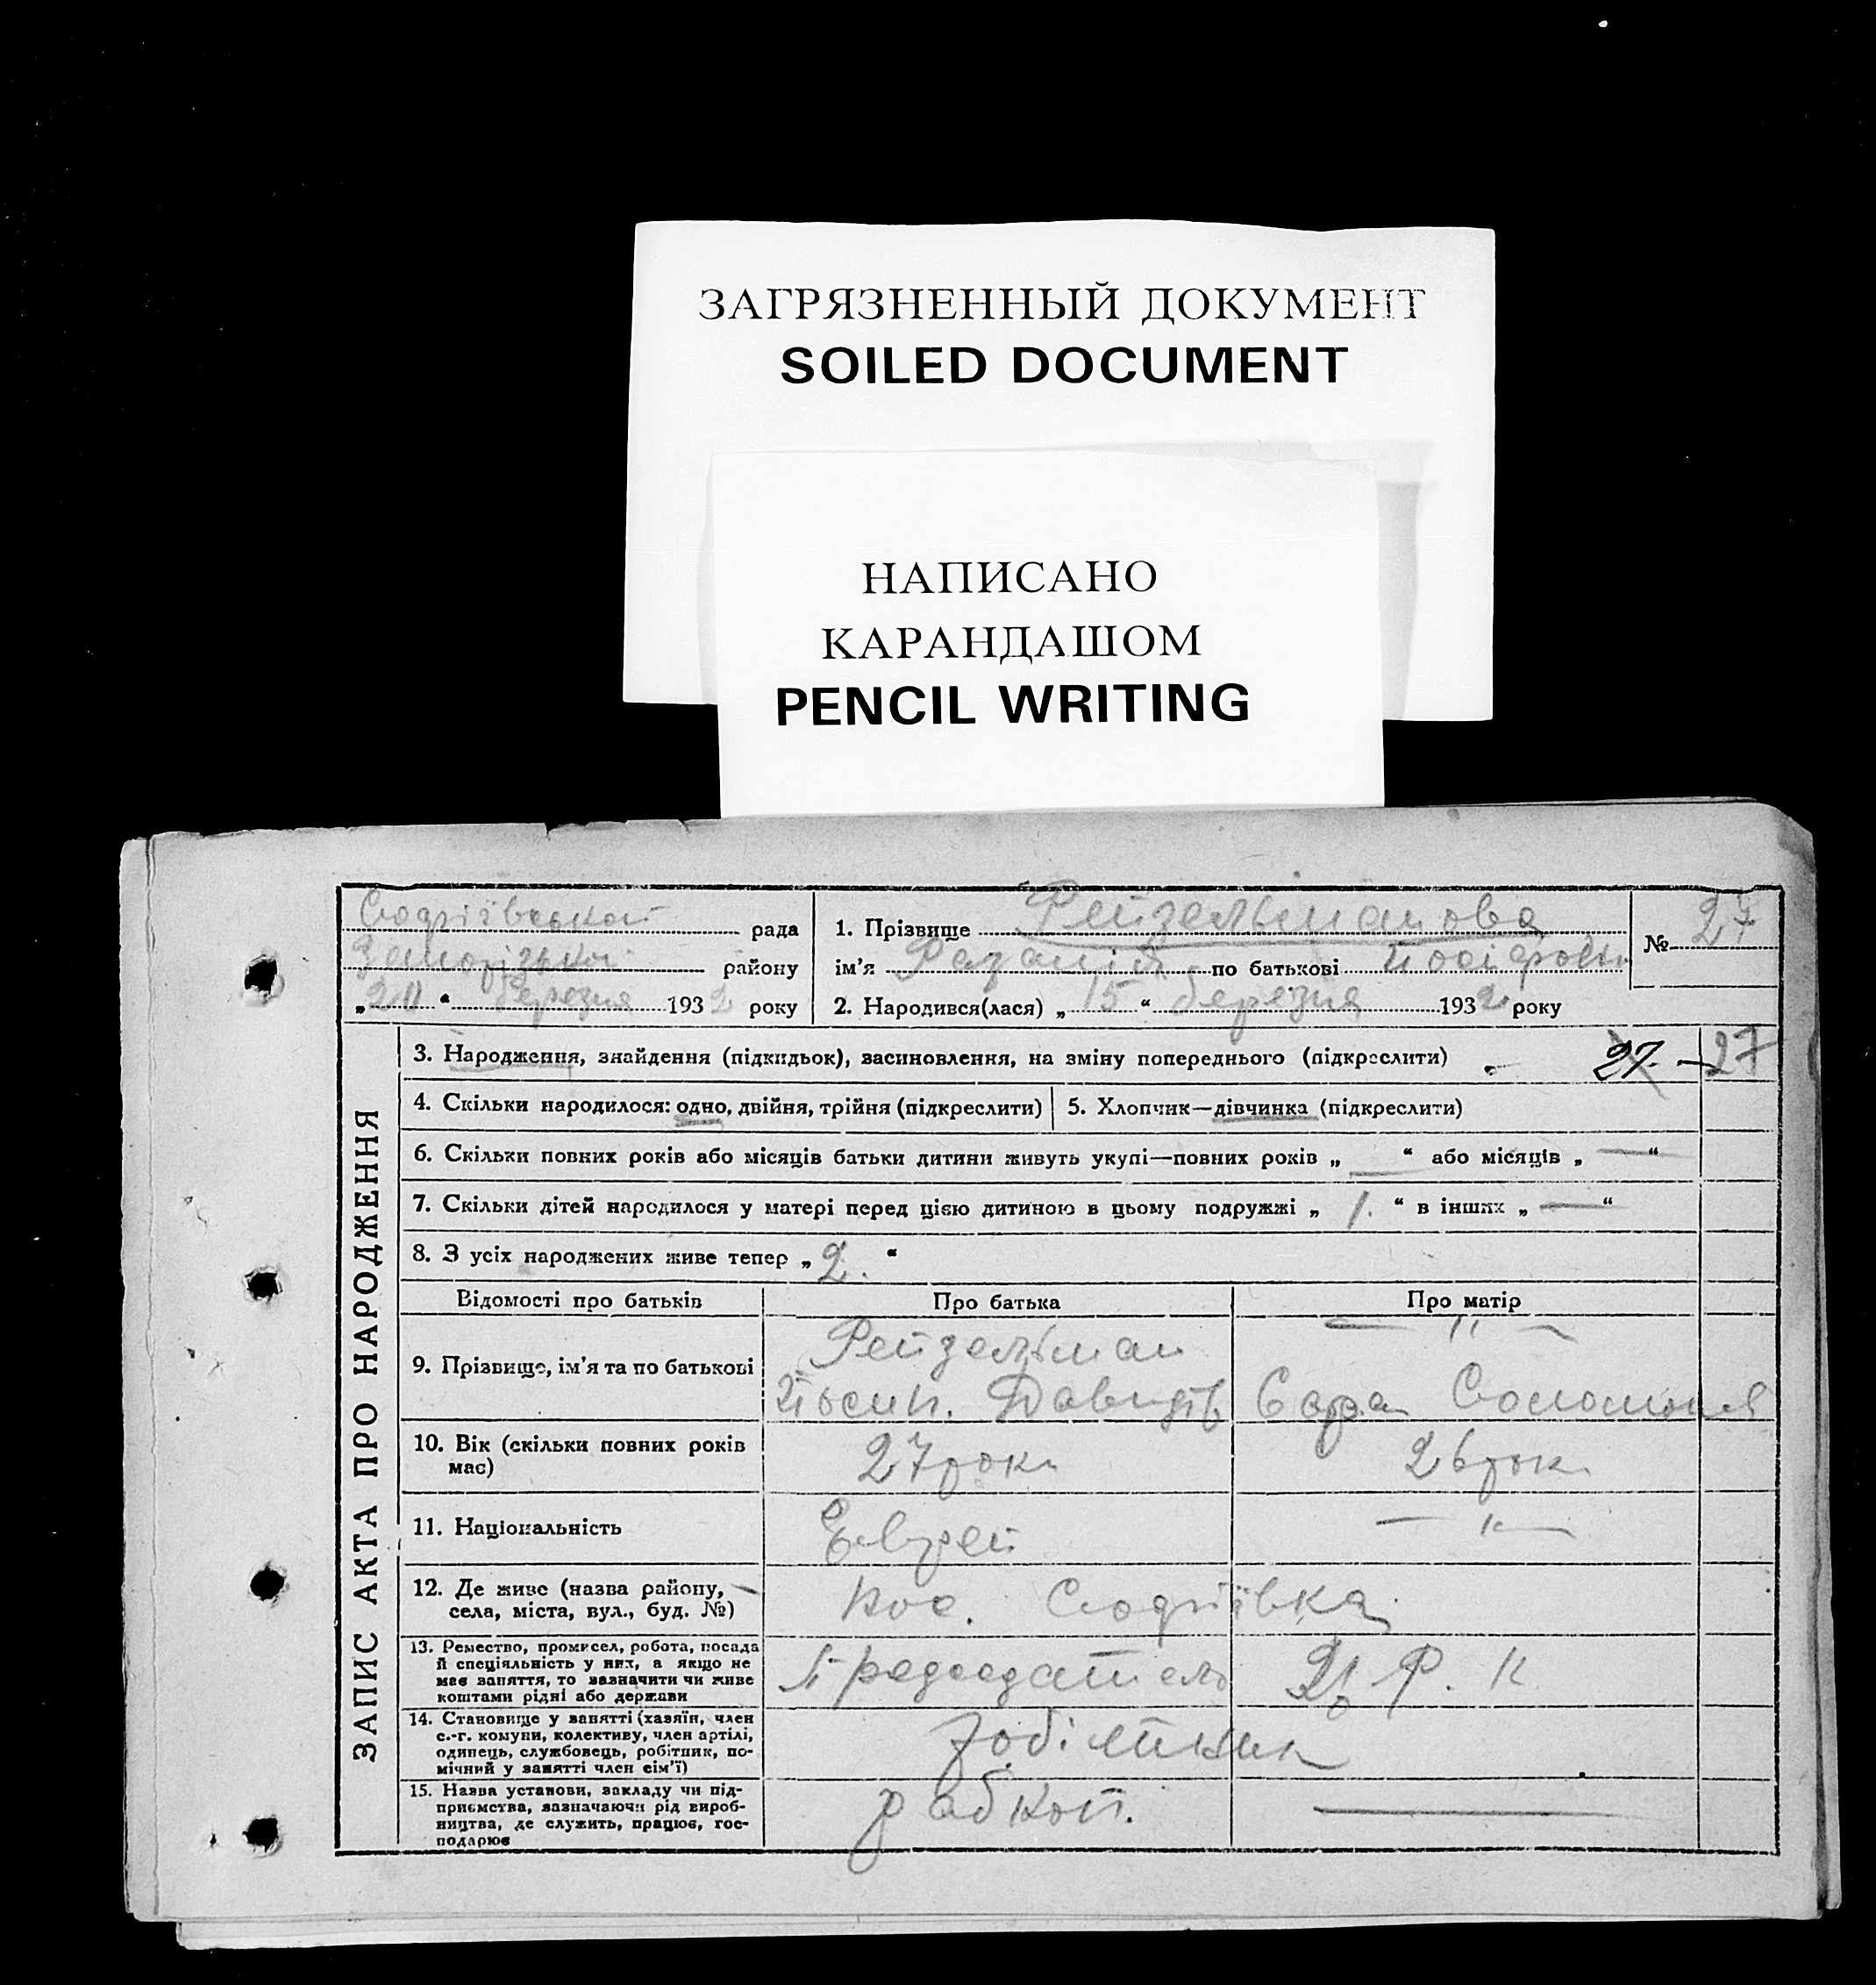 ЗАГРЯЗНЕННЫЙ ДОКУМЕНТ
SOILED DOCUMENT
НАПИСАНО
КАРАНДАШОМ
PENCIL WRITING
Софіївської рада
Запорізької району
„20“ березня 1932 року
1. Прізвище Рейзельманова
ім’я по батькові
2. Народився(лася) „15“ березня 1932 року
№ 27
ЗАПИС АКТА ПРО НАРОДЖЕННЯ
3. Народження, знайдення (підкидьок), засиновлення, на зміну попереднього (підкреслити) 27 — 27
4. Скільки народилося: одно, двійня, трійня (підкреслити) 5. Хлопчик—дівчинка (підкреслити)
6. Скільки повних років або місяців батьки дитини живуть укупі—повних років „ — “ або місяців „ — “
7. Скільки дітей народилося у матері перед цією дитиною в цьому подружжі „ 1. “ в інших „ — “
8. З усіх народжених живе тепер „ 2. “
Відомості про батьків Про батька Про матір
9. Прізвище, ім’я та по батькові
Рейзельман
Йосип. Давидів
— " —
Сара Соломонів
10. Вік (скільки повних років
має)
27 роки
26 роки
11. Національність
Еврей
— " —
12. Де живе (назва району,
села, міста, вул., буд. №)
пос. Софіївка
13. Ремество, промисел, робота, посада
й спеціяльність у них, а якщо не
має заняття, то зазначити чи живе
коштами рідні або держави
Председатель Р. К
14. Становище у занятті (хазяїн, член
с.-г. комуни, колективу, член артілі,
одинець, службовець, робітник, по-
мічний у занятті член сім’ї)
робітник
15. Назва установи, закладу чи під-
приємства, зазначаючи рід вироб-
ництва, де служить, працює, гос-
подарює
рабкоп.